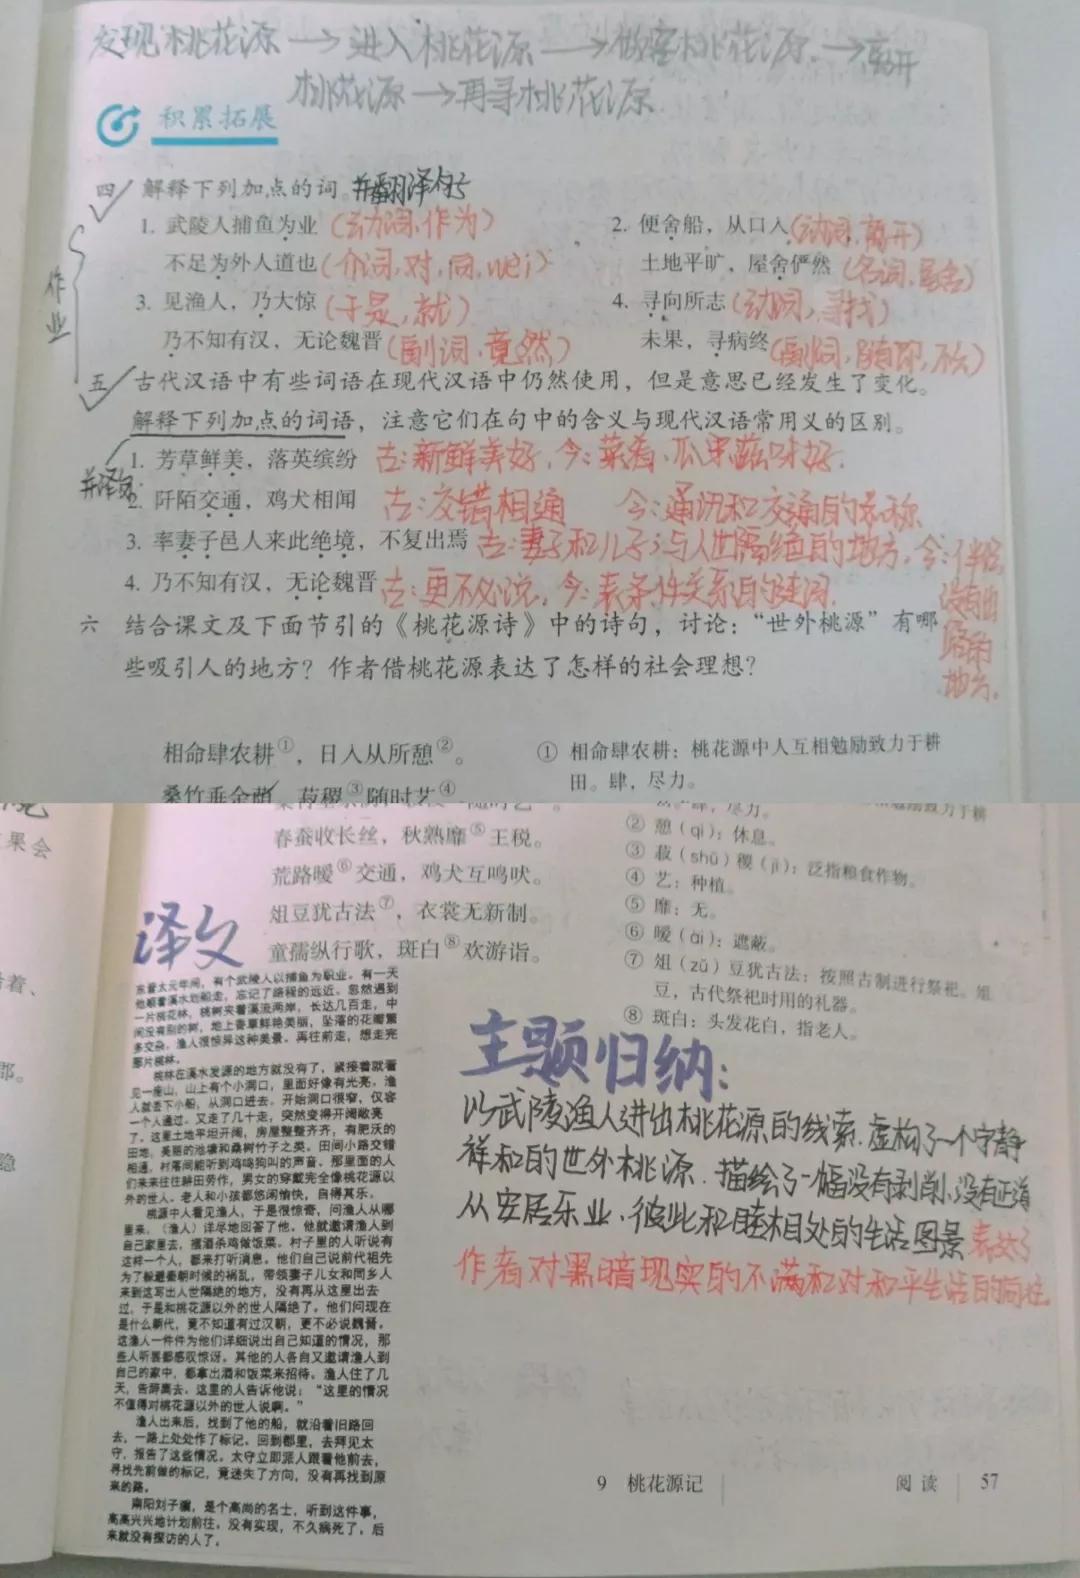 发现桃花源→进入桃花源→做客桃花源→离开
桃花源→再寻桃花源
积累拓展
四 解释下列加点的词。并翻译句
1. 武陵人捕鱼为业(动词,作为)
不足为外人道也(介词,对,向,wei)
2. 便舍船,从口入(动词,离开)
土地平旷,屋舍俨然(名词,屋舍)
3. 见渔人,乃大惊(于是,就)
乃不知有汉,无论魏晋(副词,竟然)
4. 寻向所志(动词,寻找)
未果,寻病终(副词,随即,不久)
作业
五 古代汉语中有些词语在现代汉语中仍然使用,但是意思已经发生了变化。
解释下列加点的词语,注意它们在句中的含义与现代汉语常用义的区别。
1. 芳草鲜美,落英缤纷 古:新鲜美好,今:菜肴、瓜果滋味好.
并译句
2. 阡陌交通,鸡犬相闻 古:交错相通 今:通讯和交通的总称
3. 率妻子邑人来此绝境,不复出焉 古:妻子和儿子;与人世隔绝的地方,今:
没有出
路的
地方.
4. 乃不知有汉,无论魏晋 古:更不必说,今:表条件关系的连词.
六 结合课文及下面节引的《桃花源诗》中的诗句,讨论:“世外桃源”有哪
些吸引人的地方?作者借桃花源表达了怎样的社会理想?
相命肆农耕①,日入从所憩②。
桑竹垂余荫,菽稷③随时艺④
① 相命肆农耕:桃花源中人互相勉励致力于耕
田。肆,尽力。
果会
春蚕收长丝,秋熟靡⑤王税。
荒路暧⑥交通,鸡犬互鸣吠。
俎豆犹古法⑦,衣裳无新制。
童孺纵行歌,斑白⑧欢游诣。
尽力。
② 憩(qì):休息。
③ 菽(shū)稷(jì):泛指粮食作物。
④ 艺:种植。
⑤ 靡:无。
⑥ 暧(ài):遮蔽。
⑦ 俎(zǔ)豆犹古法:按照古制进行祭祀。俎
豆,古代祭祀时用的礼器。
⑧ 斑白:头发花白,指老人。
译文
东晋太元年间,有个武陵人以捕鱼为职业。有一天
他顺着溪水划船走,忘记了路程的远近。忽然遇到
一片桃花林,桃树夹着溪流两岸,长达几百走,中
间没有别的树,地上香草鲜艳美丽,坠落的花瓣繁
多交杂。渔人很惊异这种美景。再往前走,想走完
那片桃林。
桃林在溪水发源的地方就没有了,紧接着就看
见一座山,山上有个小洞口,里面好像有光亮。渔
人就丢下小船,从洞口进去。开始洞口很窄,仅容
一个人通过。又走了几十走,突然变得开阔敞亮
了。这里土地平坦开阔,房屋整整齐齐,有肥沃的
田地、美丽的池塘和桑树竹子之类。田间小路交错
相通,村落间能听到鸡鸣狗叫的声音。那里面的人
们来来往往耕田劳作,男女的穿戴完全像桃花源以
外的世人。老人和小孩都悠闲愉快,自得其乐。
桃源中人看见渔人,于是很惊奇,问渔人从哪
里来。(渔人)详尽地回答了他。他就邀请渔人到
自己家里去,摆酒杀鸡做饭菜。村子里的人听说有
这样一个人,都来打听消息。他们自己说前代祖先
为了躲避秦朝时候的祸乱,带领妻子儿女和同乡人
来到这写出人世隔绝的地方,没有再从这里出去
过,于是和桃花源以外的世人隔绝了。他们问现在
是什么朝代,竟不知道有过汉朝,更不必说魏晋。
这渔人一件件为他们详细说出自己知道的情况,那
些人听罢都感叹惊讶。其他的人各自又邀请渔人到
自己的家中,都拿出酒和饭菜来招待。渔人住了几
天,告辞离去。这里的人告诉他说:“这里的情况
不值得对桃花源以外的世人说啊。”
渔人出来后,找到了他的船,就沿着旧路回
去,一路上处处作了标记。回到郡里,去拜见太
守,报告了这些情况。太守立即派人跟着他前去,
寻找先前做的标记,竟迷失了方向,没有再找到原
来的路。
南阳刘子骥,是个高尚的名士,听到这件事,
高高兴兴地计划前往。没有实现,不久病死了。后
来就没有探访的人了。
主题归纳:
以武陵渔人进出桃花源的线索.虚构了一个宁静
祥和的世外桃源.描绘了一幅没有剥削,没有压迫
人安居乐业.彼此和睦相处的生活图景 表达了
作者对黑暗现实的不满和对和平生活的向往.
着、
郡。
隐
9 桃花源记
阅读
57